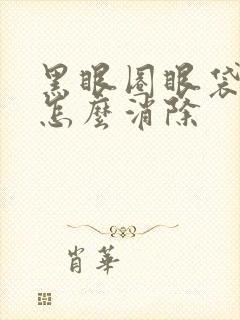 黑眼圈眼袋
怎麼消除
肖華